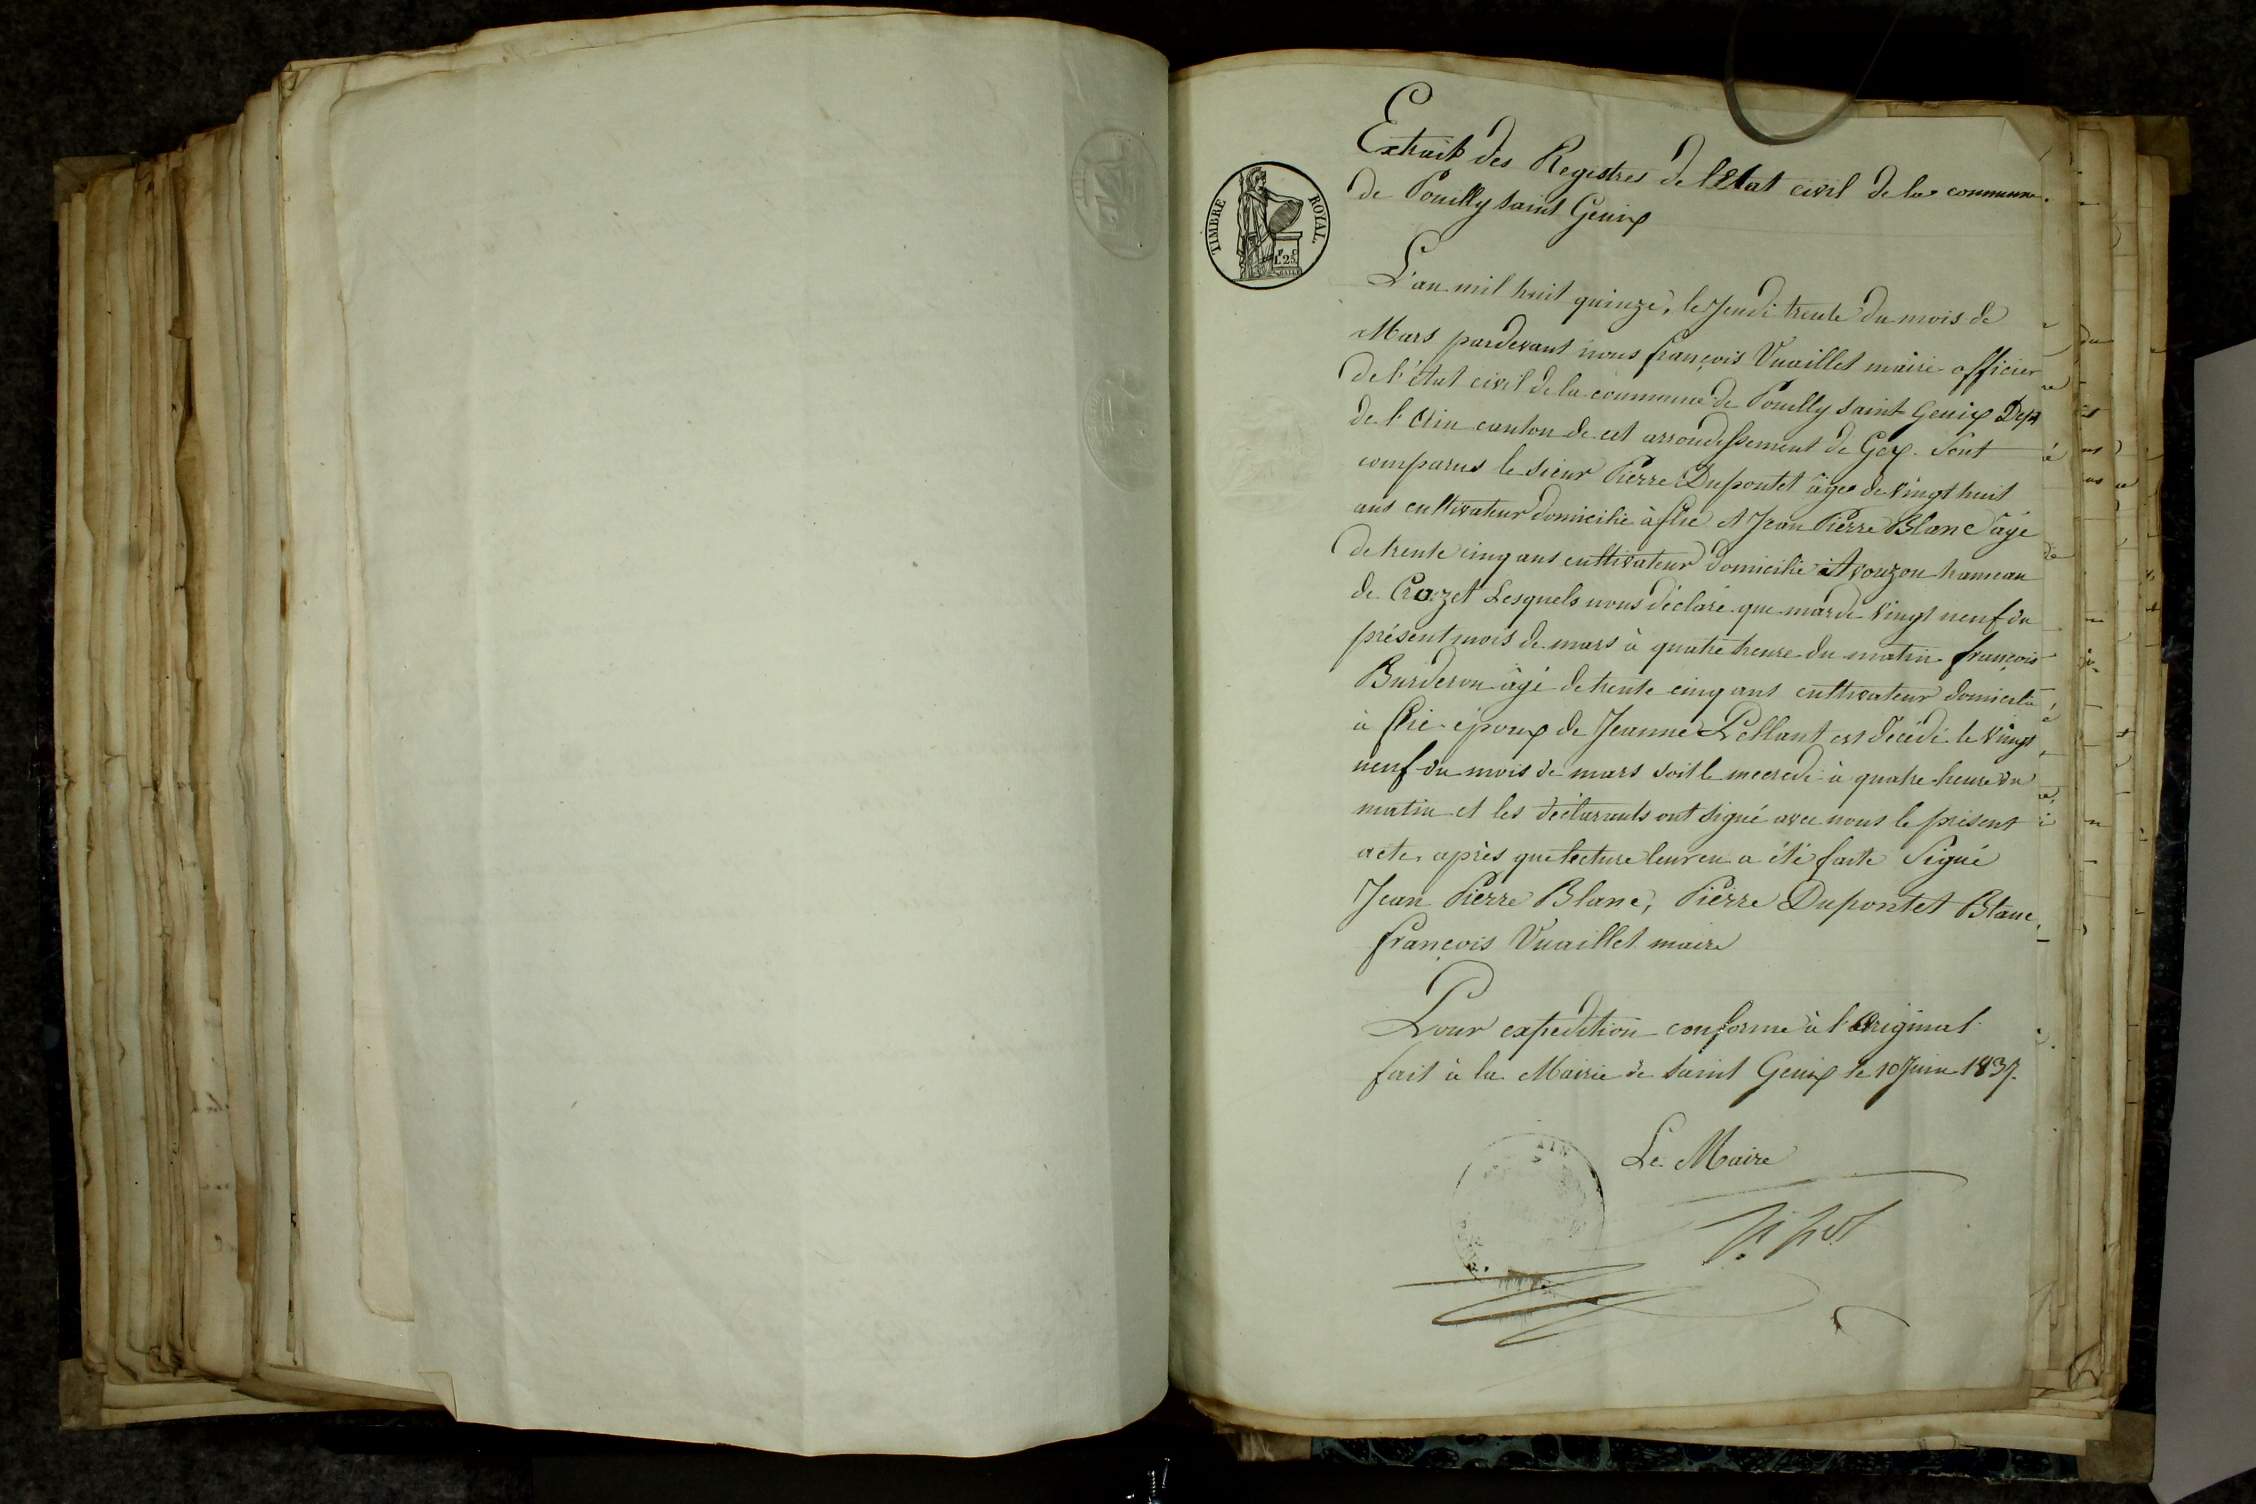 Extrait des Registres de l'Etat civil de la commune
de Pouilly saint Genix
TIMBRE ROYAL.
1F 25c
L'an mil huit quinze, le Jeudi trente du mois de
Mars pardevant nous françois Vuaillet maire officier
de l'état civil de la commune de Pouilly saint Genix Dept
de l'Ain canton de cet arrondissement de Gex. Sont
comparus le sieur Pierre Dupontet âgé de vingt huit
ans cultivateur domicilié à flie et Jean Pierre Blanc âgé
de trente cinq ans cultivateur domicilié à Avouzon hameau
de Crozet Lesquels nous déclaré que mardi vingt neuf du
présent mois de mars à quatre heure du matin françois
Burderon âgé de trente cinq ans cultivateur domicilié
à flie époux de Jeanne Pellant est décédé le vingt
neuf du mois de mars soit le mecredi à quatre heure du
matin et les déclarants ont signé avec nous le présent
acte, après que lecture leur en a été faite Signé
Jean Pierre Blanc, Pierre Dupontet Blanc,
françois Vuaillet maire
Pour expedition conforme à l'Original
fait à la Mairie de saint Genix le 10 Juin 1837.
Le Maire
AIN